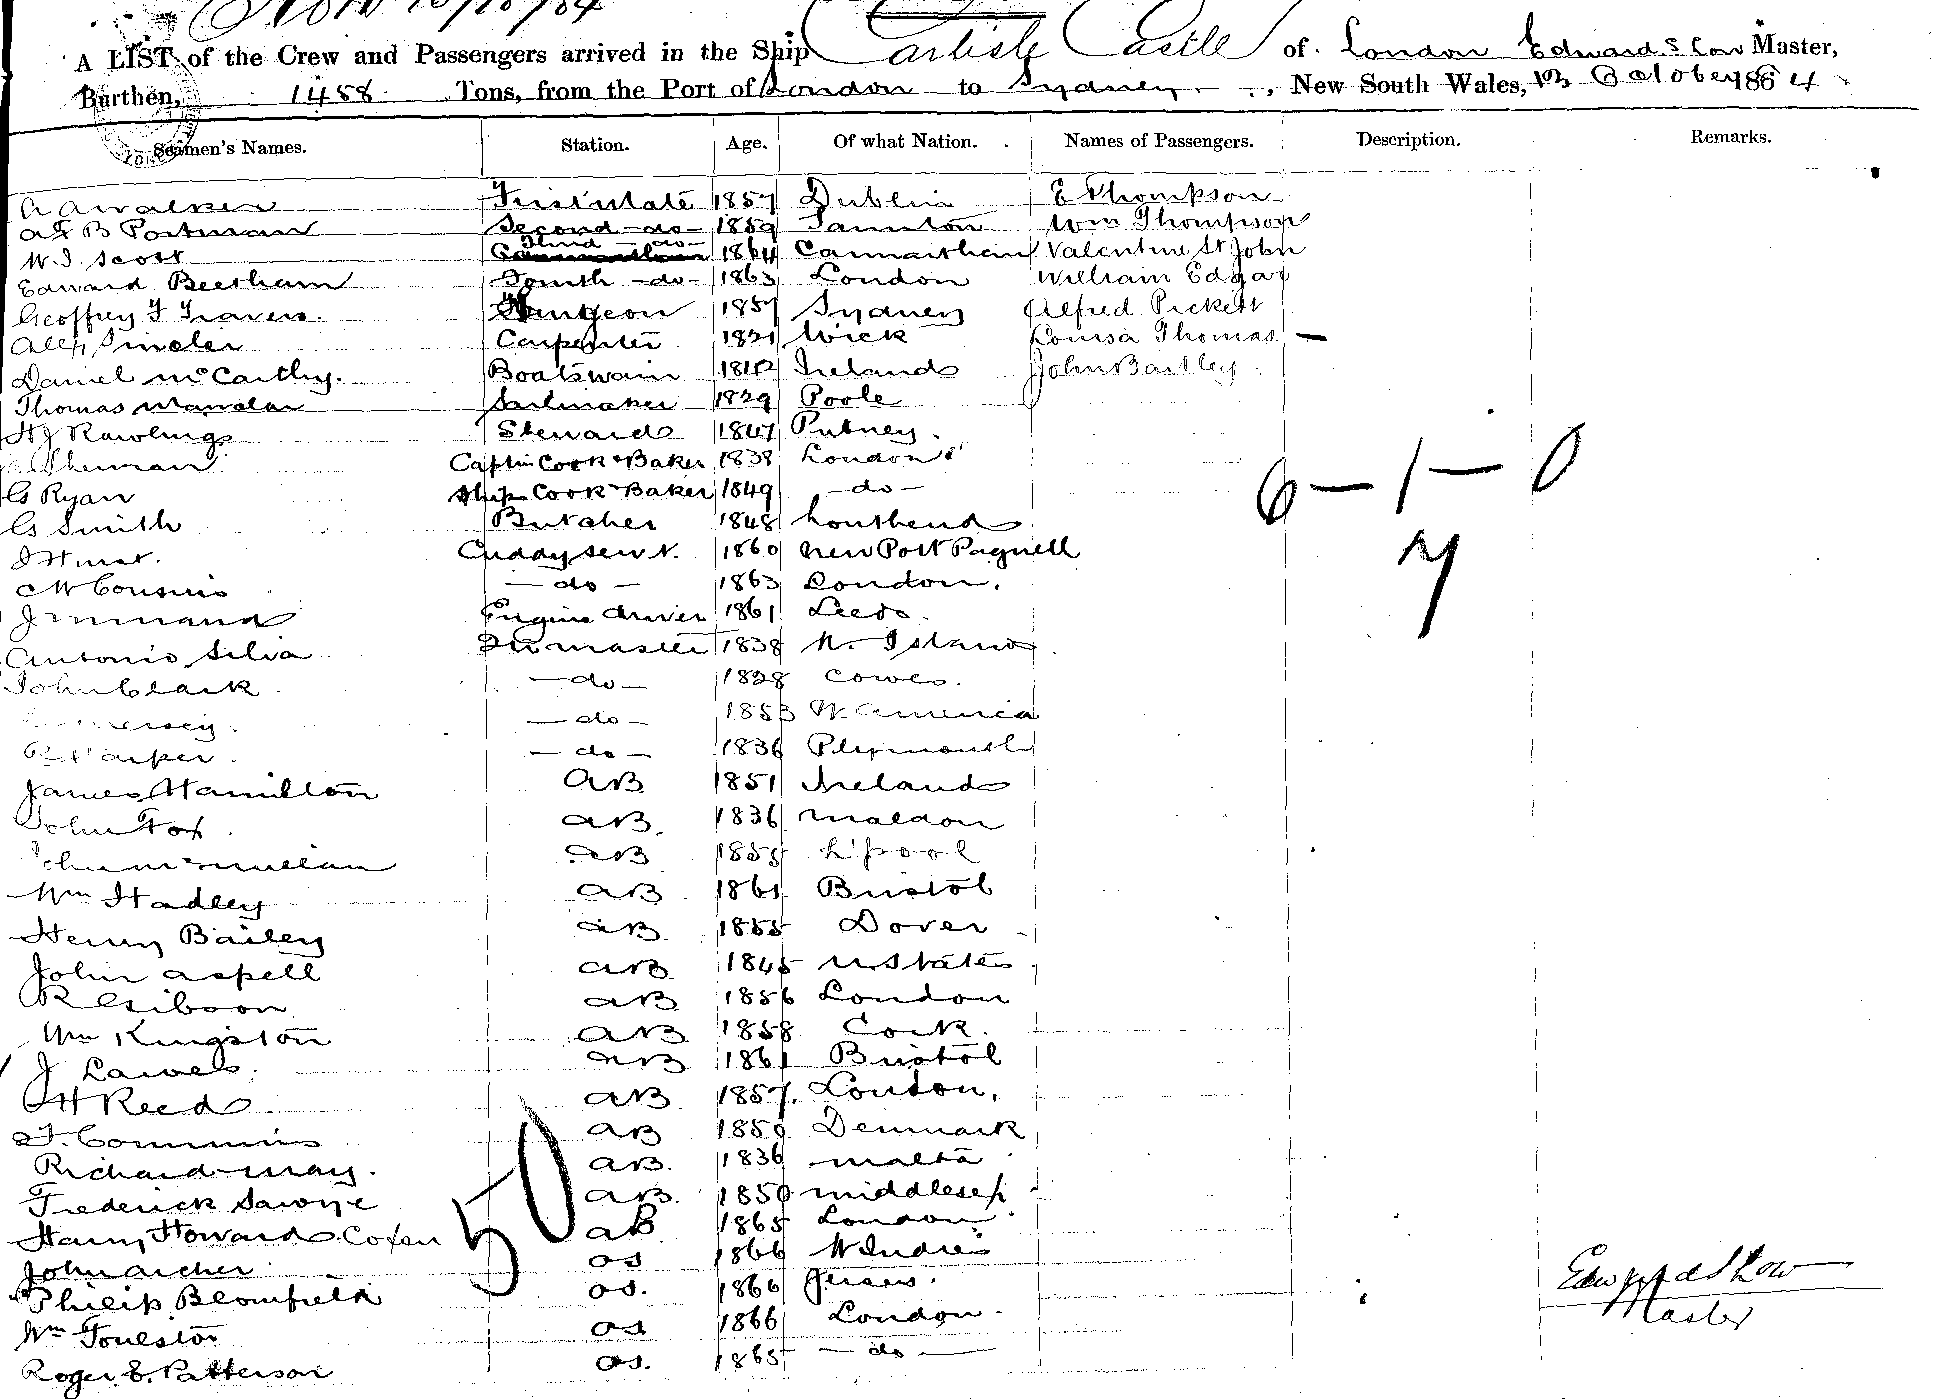 A LIST of the Crew and Passengers arrived in the Ship Carlisle Castle of London Edward S Low Master,
Burthen, 1488 Tons, from the Port of London to Sydney, New South Wales, 13 October 1884
Seamen's Names. Station. Age. Of what Nation. Names of Passengers. Description. Remarks.
A Walker First Mate 1857 Dublin E Thompson
B Portman Second do 1859 Taunton Wm Thompson
W. J. Scott Third do 1864 Carmarthen Valentine St John
Edward Beetham Fourth do 1863 London William Edgar
Geoffrey F Travers Surgeon 1857 Sydney Alfred Pickett
Alex Sincler Carpenter 1821 Wick Louisa Thomas —
Daniel McCarthy. Boatswain Ireland John Bartley
Thomas Sailmaker 1829 Poole
H J Rawlings Steward 1847 Putney.
Sherman Captn Cook & Baker 1838 London
G Ryan Ship Cook Baker 1849 — do —
G Smith Butcher 1848 Southend
J Hurst. Cuddy Servt. 1860 New Port Pagnell
W Cousins — do — 1863 London.
Engine driver 1861 Leeds
Antonio Silva Qr master 1838 W. Island
John Clark — do — 1828 Cowes.
— do — 1853 W. America
R Harper — do — 1836 Plymouth
James Hamilton AB 1851 Ireland
John Fox AB. 1836 Maldon
John McMullan AB 1855 L'pool
Wm Hadley AB 1861 Bristol
Henry Bailey AB 1855 Dover
John Aspell AB 1845 U. States
R Gibson AB 1856 London
Wm Kingston AB 1858 Cork.
J Lawes AB 1861 Bristol
H Reed AB 1857. London,
J. Commins AB 1859 Denmark
Richard May. AB. 1836 Malta
Frederick Sawye AB. 1850 Middlesex
Harry Howard Coxen AB 1865 London
John Archer OS 1866 W Indies
Philip Blomfield OS. 1866 Jersey.
Wm Toulston OS 1866 London
Roger E. Patterson OS. 1865 — do —
6 — 1 — 0
7
50
Edward S Low
Master